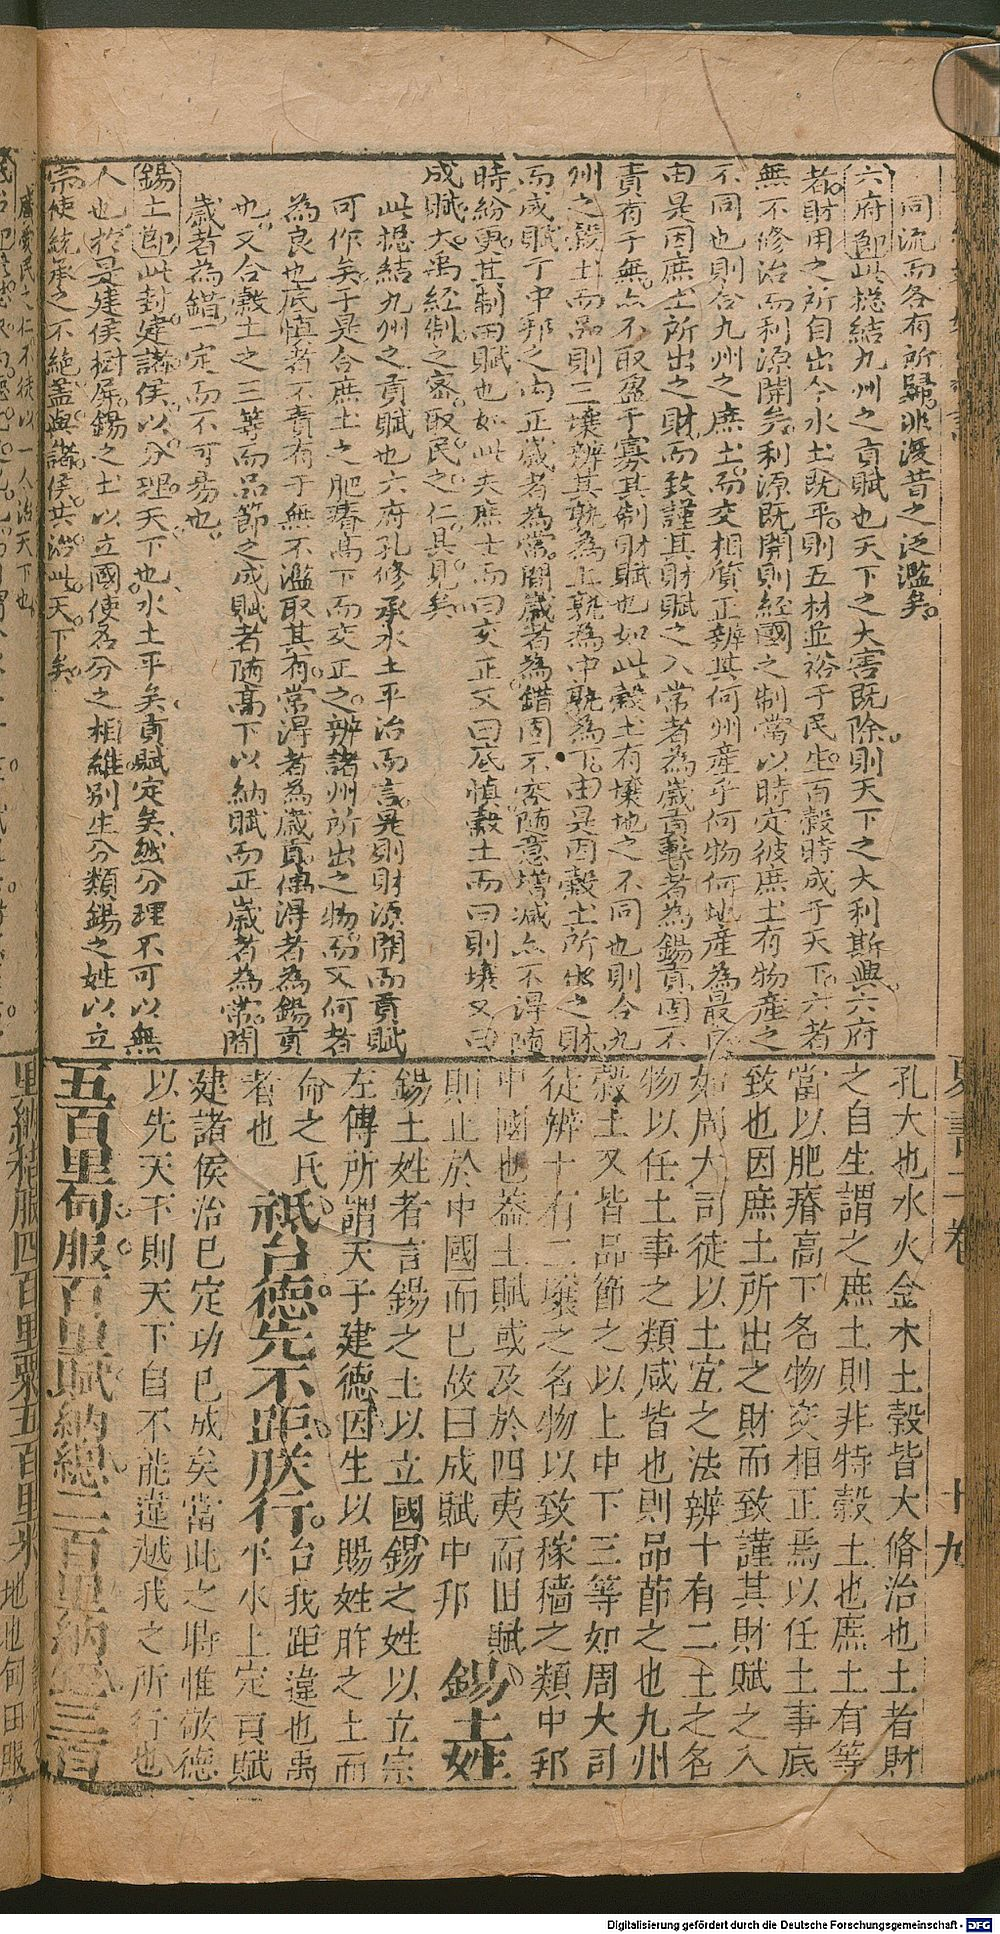 同流而各有所歸非復昔之泛濫矣
六府節此摠結九州之貢賦也天下之大害既除則天下之大利斯興六府
者財用之所自出今水土既平則五材並裕于民生百穀時成于天下六者
無不修治而利源開矣利源既開則經國之制當以時定彼庶土有物產之
不同也則合九州之庶土而交相質正辨其何州產乎何物何地產為最
由是因庶土所出之財而致謹其財賦之入常者為歲貢暫者為錫貢固不
責有于無亦不取盈于寡其制財賦也如此穀土有壤地之不同也則合九
州之穀土而品則三壤辨其孰為上孰為中孰為下由是因穀土所出之財
而成賦于中邦之內正歲者為常間歲者為錯固不容隨意增減亦不得隨
時紛更其制田賦也如此夫庶土而曰交正又曰底慎穀土而曰則壤又曰
成賦大禹經制之密取民之仁具見矣
此摠結九州之貢賦也六府孔修承水土平治而言是則財源開而貢賦
可作矣于是合庶土之肥瘠高下而交正之辨諸州所出之物而又何者
為良也底慎者不責有于無不濫取其有常得者為歲貢偶得者為錫貢
也又合穀土之三等而品節之成賦者隨高下以納賦而正歲者為常間
歲者為錯一定而不可易也
錫土節此封建諸侯以分理天下也水土平矣貢賦定矣然分理不可以無
人也於是建侯樹屏錫之土以立國使名分之相維別生分類錫之姓以立
宗使統承之不絕蓋與諸侯共治此天下矣
孔大也水火金木土穀皆大脩治也土者財
之自生謂之庶土則非特穀土也庶土有等
當以肥瘠高下名物交相正焉以任土事底
致也因庶土所出之財而致謹其財賦之入
如周大司徒以土宜之法辨十有二土之名
物以任土事之類咸皆也則品節之也九州
穀土又皆品節之以上中下三等如周大司
徒辨十有二壤之名物以致稼穡之類中邦
中國也蓋土賦或及於四夷而田賦
則止於中國而已故曰成賦中邦 錫土姓
錫土姓者言錫之土以立國錫之姓以立宗
左傳所謂天子建德因生以賜姓胙之土而
命之氏 祗台德先不距朕行 台我距違也禹
者也 平水土定貢賦
建諸侯治已定功已成矣當此之時惟敬德
以先天下則天下自不能違越我之所行也
五百里甸服百里賦納總二百里納銍三百
里納秸服四百里粟五百里米 地也甸田服
書一卷 十九
Digitalisierung gefördert durch die Deutsche Forschungsgemeinschaft - DFG